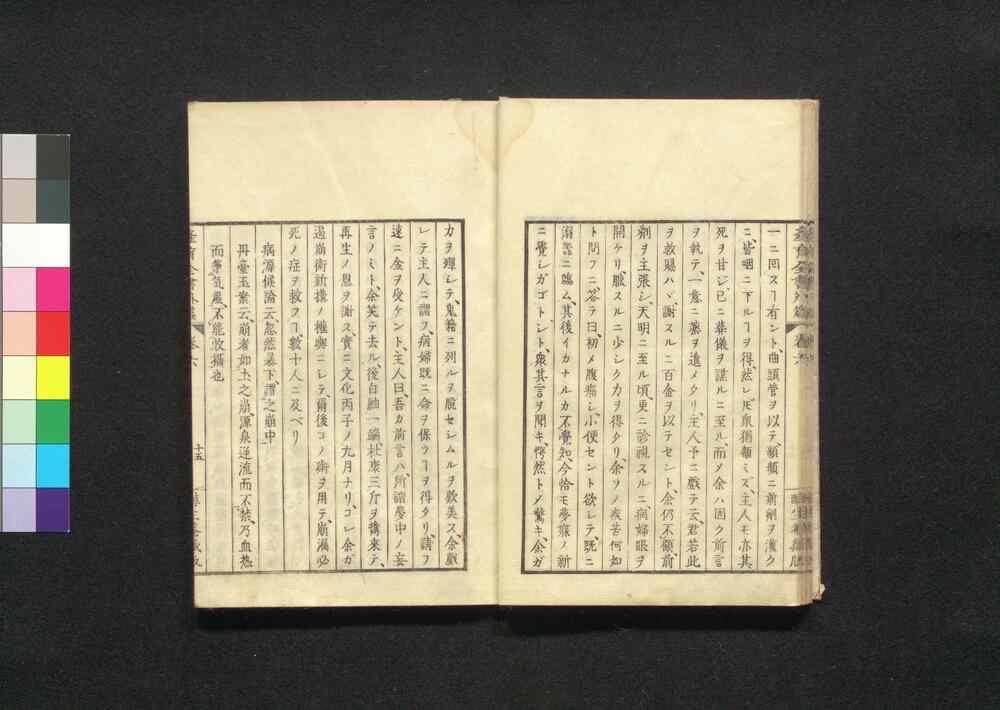 一ニ回スヿ有ント、曲頭管ヲ以テ、頻頻ニ前劑ヲ灌ク
ニ、皆咽ニ下ルヿヲ得、然レ𪜈衆猶頷ミズ、主人モ亦其
死ヲ甘ジ、已ニ葬儀ヲ謀ルニ至ル、而メ余ハ固ク前言
ヲ執テ、一意ニ藥ヲ進メタリ、主人予ニ戯テ云、君若此
ヲ救賜ハヾ、謝スルニ百金ヲ以テセント、余仍不顧、前
劑ヲ主張シ、天明ニ至ル頃、更ニ診視スルニ、病婦眼ヲ
開ケリ、服スルニ少シク力ヲ得タリ、余ソノ疾苦何如
ト問フニ、答テ曰、初メ腹痛シ、小便セント欲レテ、既ニ
溺器ニ臨ム、其後イカナルカ不覺知、今恰モ夢寐ノ新
ニ覺シガゴトシト、衆其言ヲ聞キ、愕然トメ驚キ、余ガ
力ヲ殫シテ、鬼籍ニ列ルヲ脫セシムルヲ歎美ス、余戯
レテ主人ニ謂フ、病婦既ニ命ヲ保ツヿヲ得タリ、請フ
速ニ金ヲ受ケント、主人曰、吾カ前言ハ、所謂夢中ノ妄
言ノミト、余笑テ去ル、後白紬一端、杜康三斤ヲ携來テ、
再生ノ恩ヲ謝ス、實ニ文化丙子ノ九月ナリ、コレ余ガ
遏崩術新撰ノ權輿ニシテ、爾後コノ術ヲ用テ、崩漏必
死ノ症ヲ救フヿ、數十人ニ及ベリ
病源候論云、忽然暴下、謂之崩中、
丹臺玉案云、崩者如土之崩、源泉逆流而不禁、乃血熱
而氣虛、不能收攝也
卷六
十五